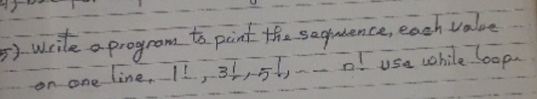 5) Write a program to print the sequence, each value
on one line, 1!, 3!, 5!, --- n! use while loop.